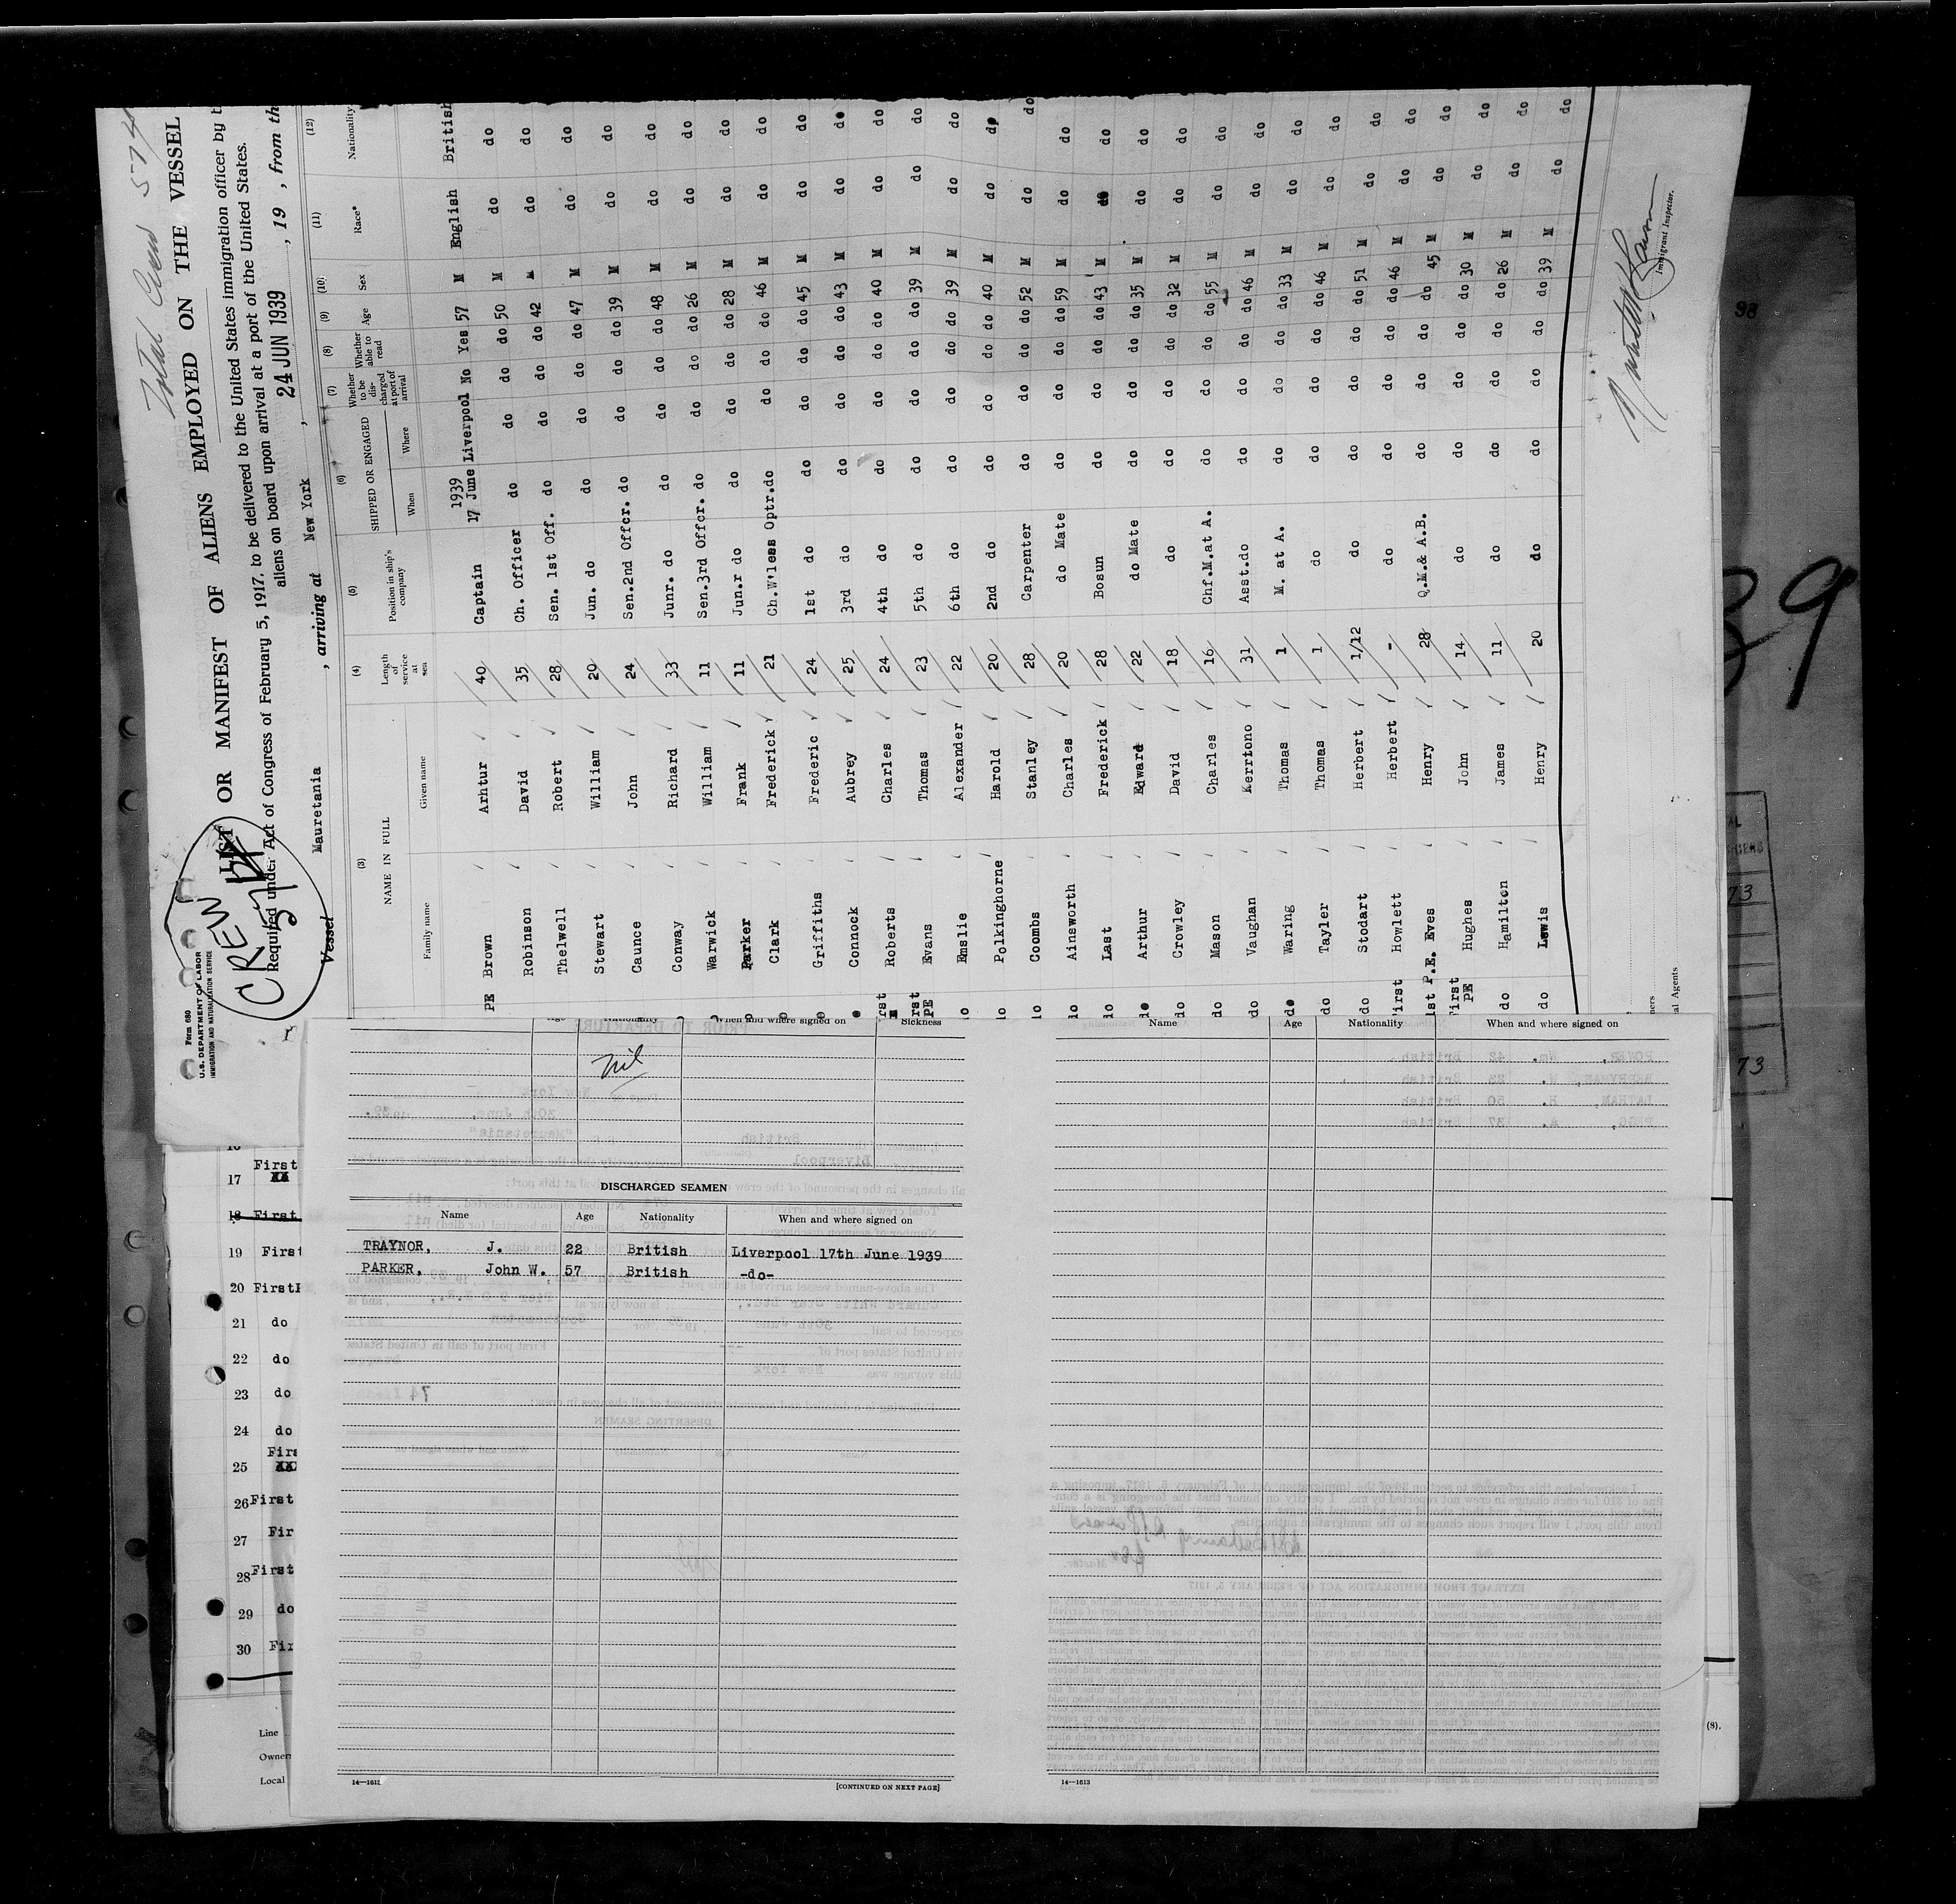 Total Crew 574
Form 680
U.S. DEPARTMENT OF LABOR
IMMIGRATION AND NATURALIZATION SERVICE
CREW
LIST OR MANIFEST OF ALIENS EMPLOYED ON THE VESSEL
Required under Act of Congress of February 5, 1917, to be delivered to the United States immigration officer by t
aliens on board upon arrival at a port of the United States.
Vessel Mauretania , arriving at New York , 24 JUN 1939 , 19 , from th
(3) (4) (5) (6) (7) (8) (9) (10) (11) (12)
NAME IN FULL
Family name Given name
Length of service at sea
Position in ship's company
SHIPPED OR ENGAGED
When Where
Whether to be discharged at port of arrival
Whether able to read
Age Sex Race* Nationality
1939
PE Brown Arhtur 40 Captain 17 June Liverpool No Yes 57 M English British
Robinson David 35 Ch. Officer do do do do 50 M do do
Thelwell Robert 28 Sen. 1st Off. do do do do 42 M do do
Stewart William 29 Jun. do do do do do 47 M do do
Caunce John 24 Sen.2nd Offcr. do do do do 39 M do do
Conway Richard 33 Junr. do do do do do 48 M do do
Warwick William 11 Sen.3rd Offcr. do do do do 26 M do do
Parker Frank 11 Jun.r do do do do do 28 M do do
Clark Frederick 21 Ch.W'less Optr.do do do do 46 M do do
Griffiths Frederic 24 1st do do do do do 45 M do do
Connock Aubrey 25 3rd do do do do do 43 M do do
Roberts Charles 24 4th do do do do do 40 M do do
PE Evans Thomas 23 5th do do do do do 39 M do do
Emslie Alexander 22 6th do do do do do 39 M do do
Polkinghorne Harold 20 2nd do do do do do 40 M do do
Coombs Stanley 28 Carpenter do do do do 52 M do do
Ainsworth Charles 20 do Mate do do do do 59 M do do
Last Frederick 28 Bosun do do do do 43 M do do
Arthur Edward 22 do Mate do do do do 35 M do do
Crowley David 18 do do do do do 32 M do do
do Mason Charles 16 Chf.M.at A. do do do do 55 M do do
do Vaughan Kerrtono 31 Asst.do do do do do 46 M do do
do Waring Thomas 1 M. at A. do do do do 33 M do do
do Tayler Thomas 1 do do do do do 46 M do do
do Stodart Herbert 1/12 do do do do do 51 M do do
First Howlett Herbert - do do do do do 46 M do do
1st P.E. Eves Henry 28 Q.M.& A.B. do do do do 45 M do do
First PE Hughes John 14 do do do do do 30 M do do
do Hamilton James 11 do do do do do 26 M do do
do Lewis Henry 20 do do do do do 39 M do do
Immigrant Inspector.
al Agents
39
98
73
73
When and where signed on Sickness
Nil
DISCHARGED SEAMEN
Name Age Nationality When and where signed on
TRAYNOR, J. 22 British Liverpool 17th June 1939
PARKER, John W. 57 British -do-
14—1612 [CONTINUED ON NEXT PAGE]
Name Age Nationality When and where signed on
14—1613
17 First
18 First
19 First
20 First
21 do
22 do
23 do
24 do
25 Firs
26 First
27 Fir
28 First
29 do
30 Fir
Line
Owner
Local
(8).